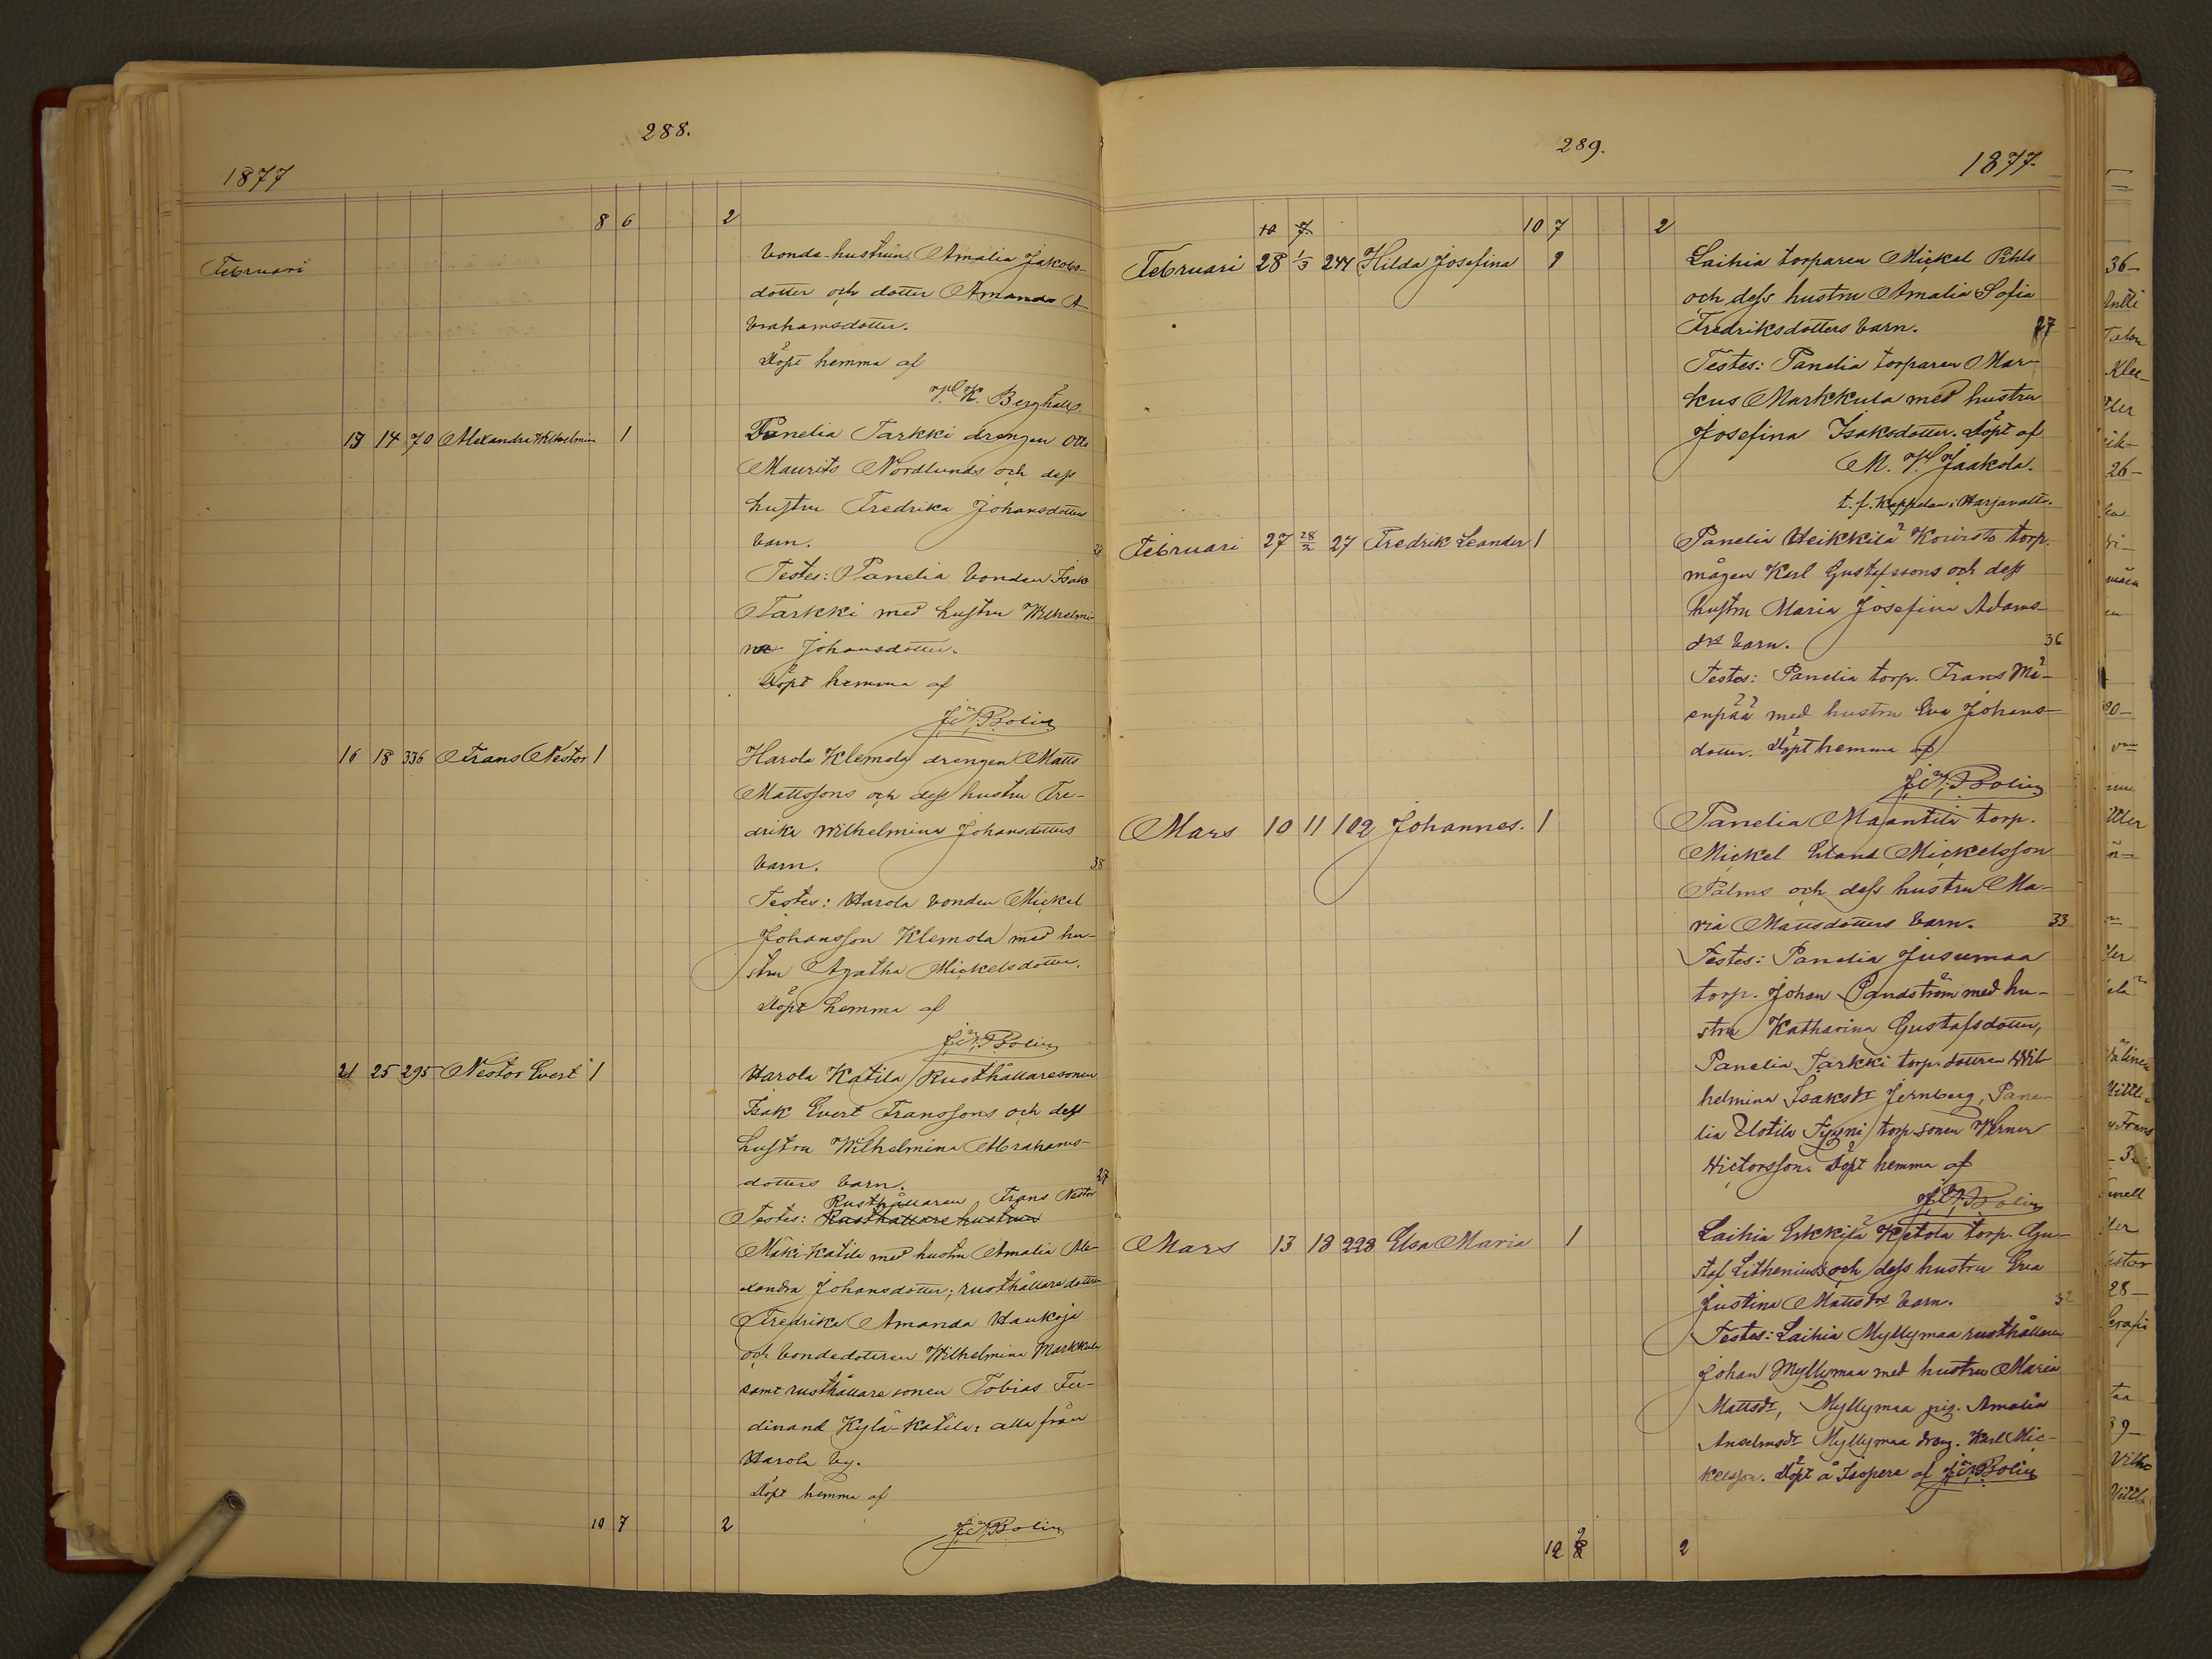 288.
1877
8 6 2
Februari
bonda-hustrun Amalia Jakobs-
dotter och dotter Amanda A-
brahamsdotter.
Döpt hemma af
K. Berghäll.
13 14 70 Alexandra Wilhelmin 1 Panelia Tarkki drengen Otto
Maurits Nordlunds och dess
hustru Fredrika Johansdotters
barn.
Testes: Panelia bonden Isak
Tarkki med hustru Wilhelmi-
na Johansdotter.
Döpt hemma af
Bolin
16 18 336 Frans Nestor 1 Harola Klemola drengen Matts
Mattssons och dess hustru Fre-
drika Wilhelmina Johansdotters
barn. 38
Testes: Harola bonden Mickel
Johansson Klemola med hu-
stru Agatha Mickelsdotter.
Döpt hemma af
Bolin
21 25 295 Nestor Evert 1 Harola Katila Rusthållaresonen
Isak Evert Franssons och dess
hustru Wilhelmina Abrahams-
dotters barn. 27
Rusthållaren Frans Nestor
Testes: Rusthållare hustrun
Mäki-Katila med hustru Amalia Ale-
xandra Johansdotter; rusthållaredottren
Fredrika Amanda Haukoja
och bondedottren Wilhelmina Markkula
samt rusthållaresonen Tobias Fer-
dinand Kylä-Katila: alla från
Harola by.
Döpt hemma af
10 7 2 Bolin
289.
1877.
10 7 10 7 2
Februari 28 1/3 244 Hilda Josefina 1 Laihia torparen Mickel
och dess hustru Amalia Sofia
Fredriksdotters barn. 27
Testes: Panelia torparen Mar-
kus Markkula med hustru
Josefina Isaksdotter. Döpt af
M. Jaakola.
t.f. Kappelan i Harjavalta.
Februari 27 28/2 27 Fredrik Leander 1 Panelia Heikkilä Koivisto torp.
mågen Karl Gustafssons och dess
hustru Maria Josefina Adams-
drs barn. 36
Testes: Panelia torp. Frans Mä-
enpää med hustru Eva Johans-
dotter. Döpt hemma af
Bolin
Mars 10 11 102 Johannes. 1 Panelia Maantila torp.
Mickel Mickelsson
Palms och dess hustru Ma-
ria Mattsdotters barn. 33
Testes: Panelia Jusumaa
torp. Johan Sandström med hu-
stru Katharina Gustafsdotter,
Panelia Tarkki torp. dottren Wil-
helmina Isaksdr Jernberg, Pane-
lia Uotila Tyyni torp. sonen Werner
Victorsson. Döpt hemma af
Bolin
Mars 13 18 228 Elsa Maria 1 Laihia Erkkilä Ketola torp. Gu-
staf Lithenius och dess hustru Eva
Justina Mattsdrs barn.
Testes: Laihia Myllymaa rusthållaren
Johan Myllymaa med hustru Maria
Mattsdr, Myllymaa pig. Amalia
Anselmsdr Myllymaa dreng. Karl Mic-
kelsson. Döpt å Isopere af Bolin
12 2